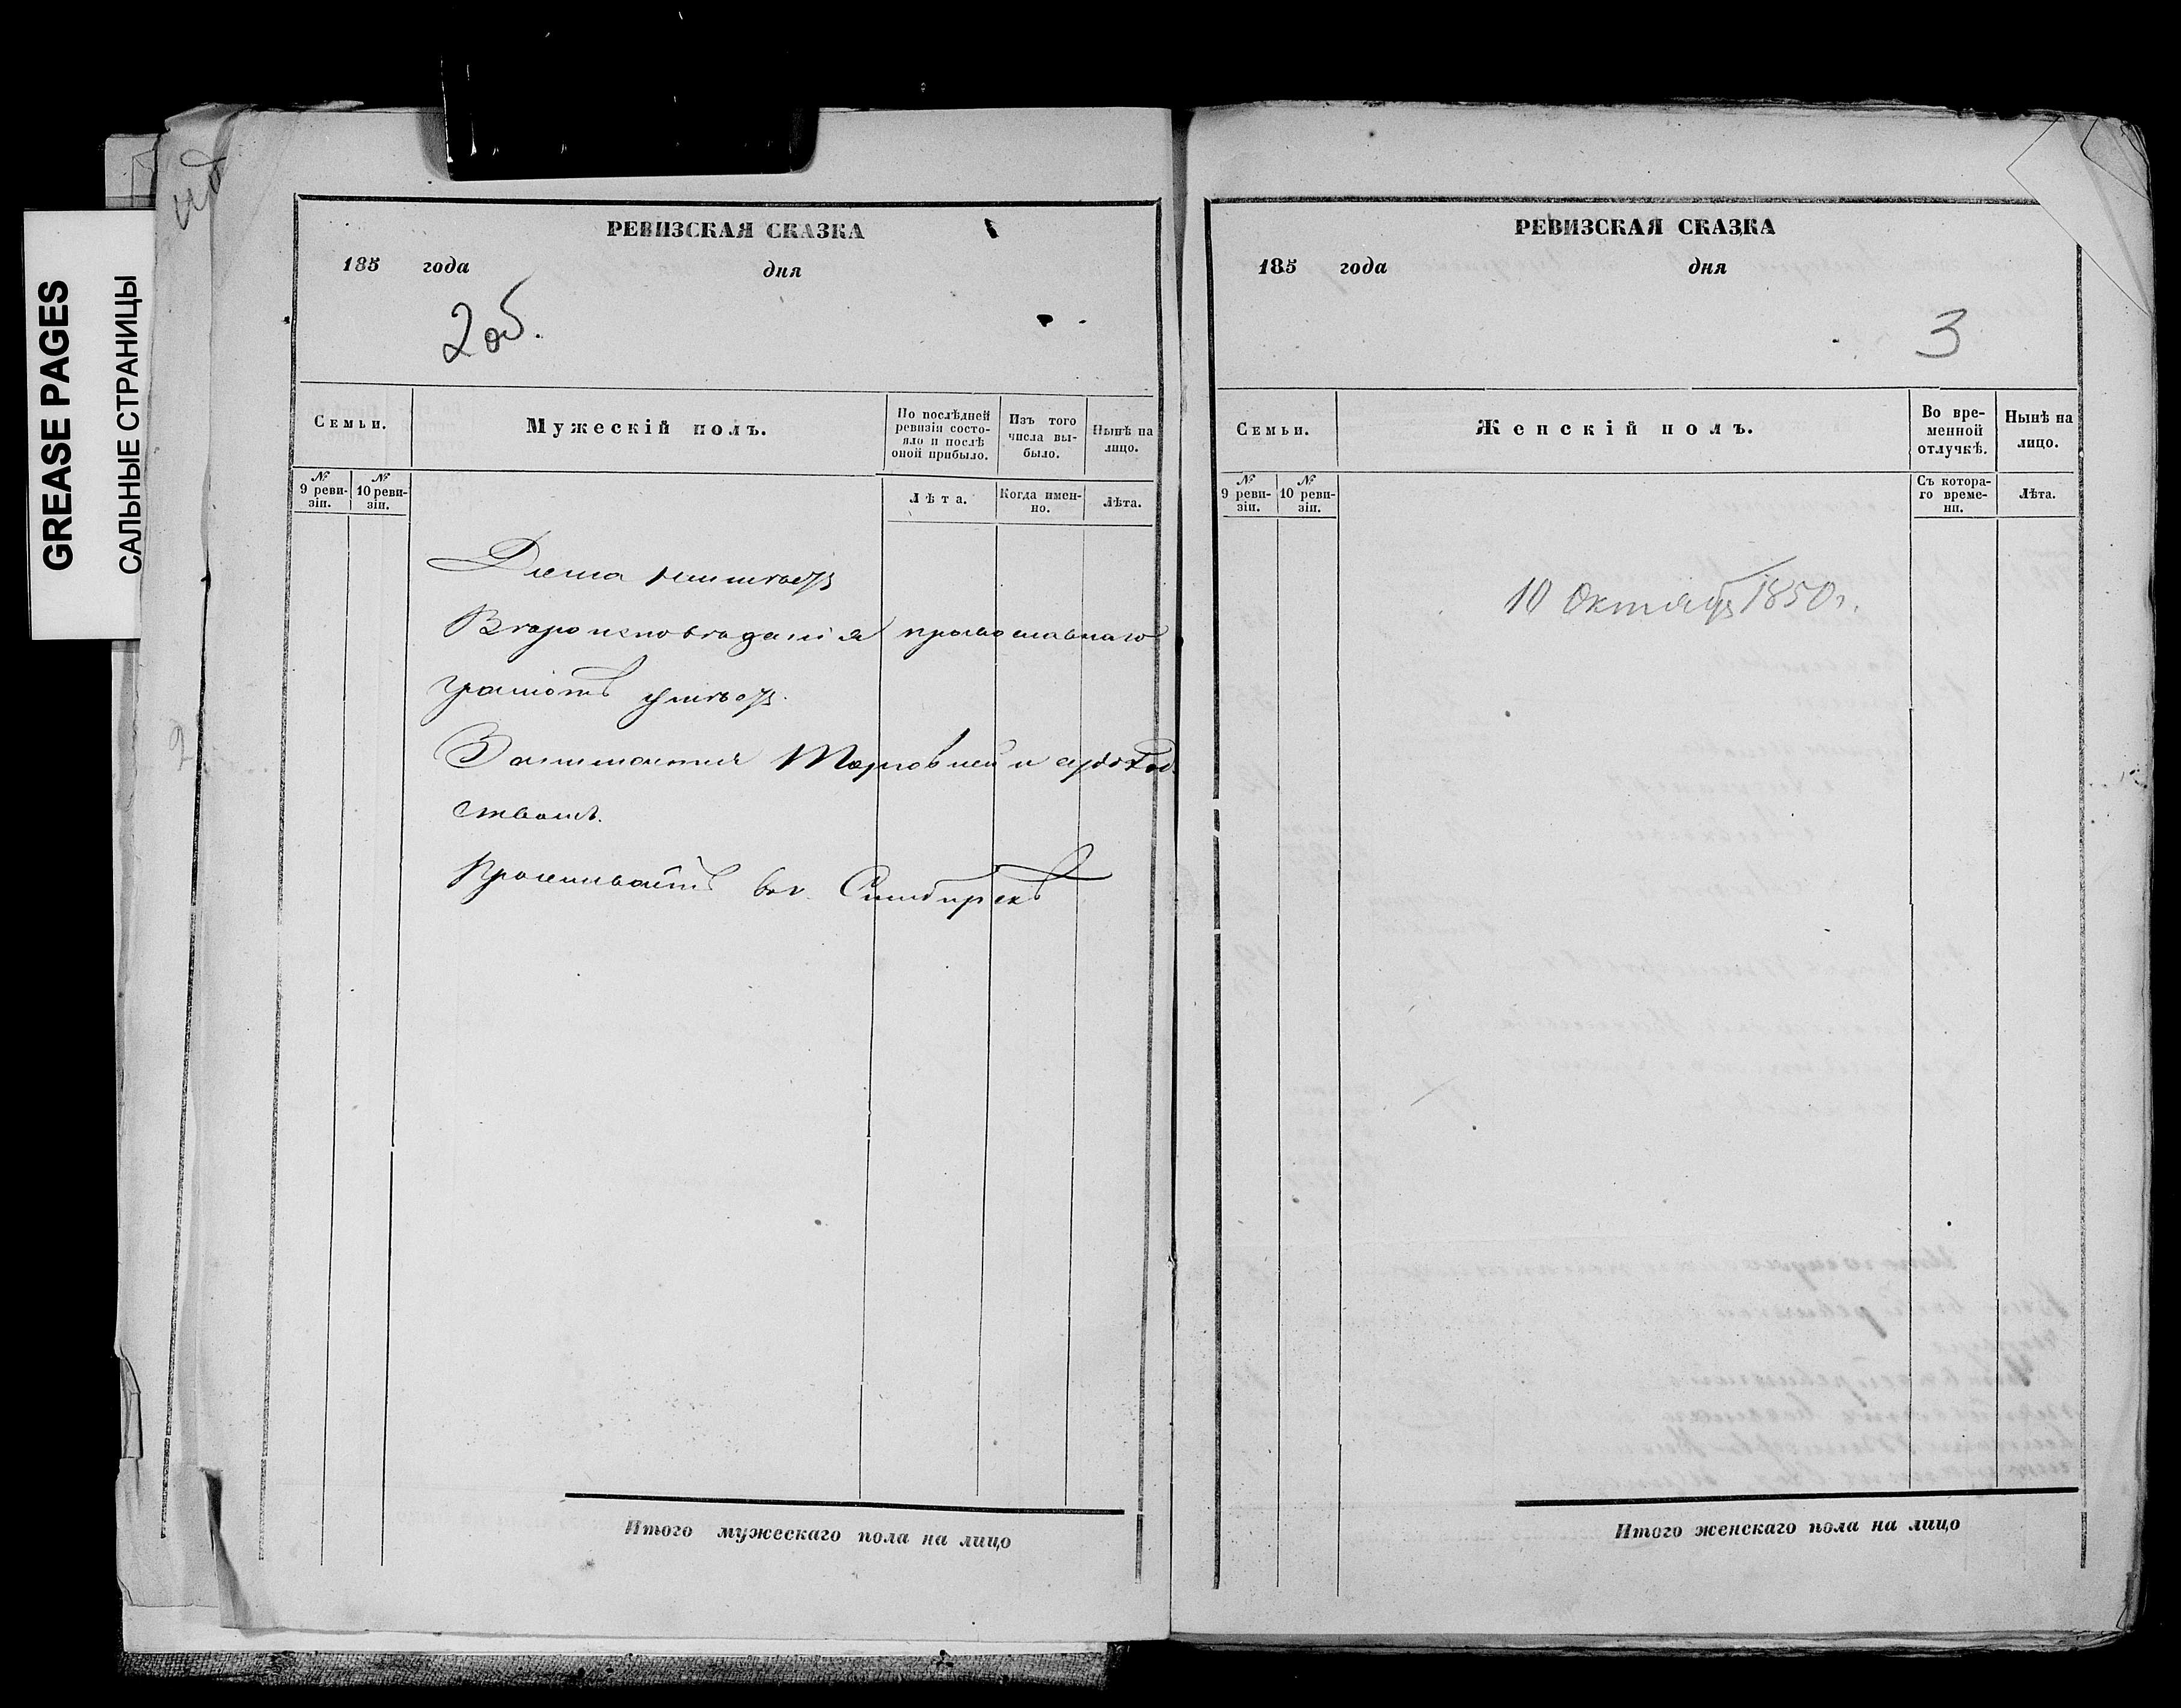 GREASE PAGES
САЛЬНЫЕ СТРАНИЦЫ
РЕВИЗСКАЯ СКАЗКА
185 года дня
2 об.
Семьи.
Мужескій полъ.
По послѣдней ревизіи состо-
яло и послѣ
оной прибыло.
Изъ того
числа вы-
было.
Нынѣ на
лицо.
№
9 реви-
зіи.
№
10 реви-
зіи.
Лѣта.
Когда имен-
но.
Лѣта.
Дома имѣетъ
Вѣроисповѣданія православнаго
грамотѣ умѣетъ.
Занимается Торговлей и судоход
ствомъ.
Проживаетъ въ г. Симбирскѣ
Итого мужескаго пола на лицо
РЕВИЗСКАЯ СКАЗКА
185 года дня
3
Семьи.
Женскій полъ.
Во вре-
менной
отлучкѣ.
Нынѣ на
лицо.
№
9 реви-
зіи.
№
10 реви-
зіи.
Съ котора-
го време-
ни.
Лѣта.
10 Октябр 1850 г.
Итого женскаго пола на лицо